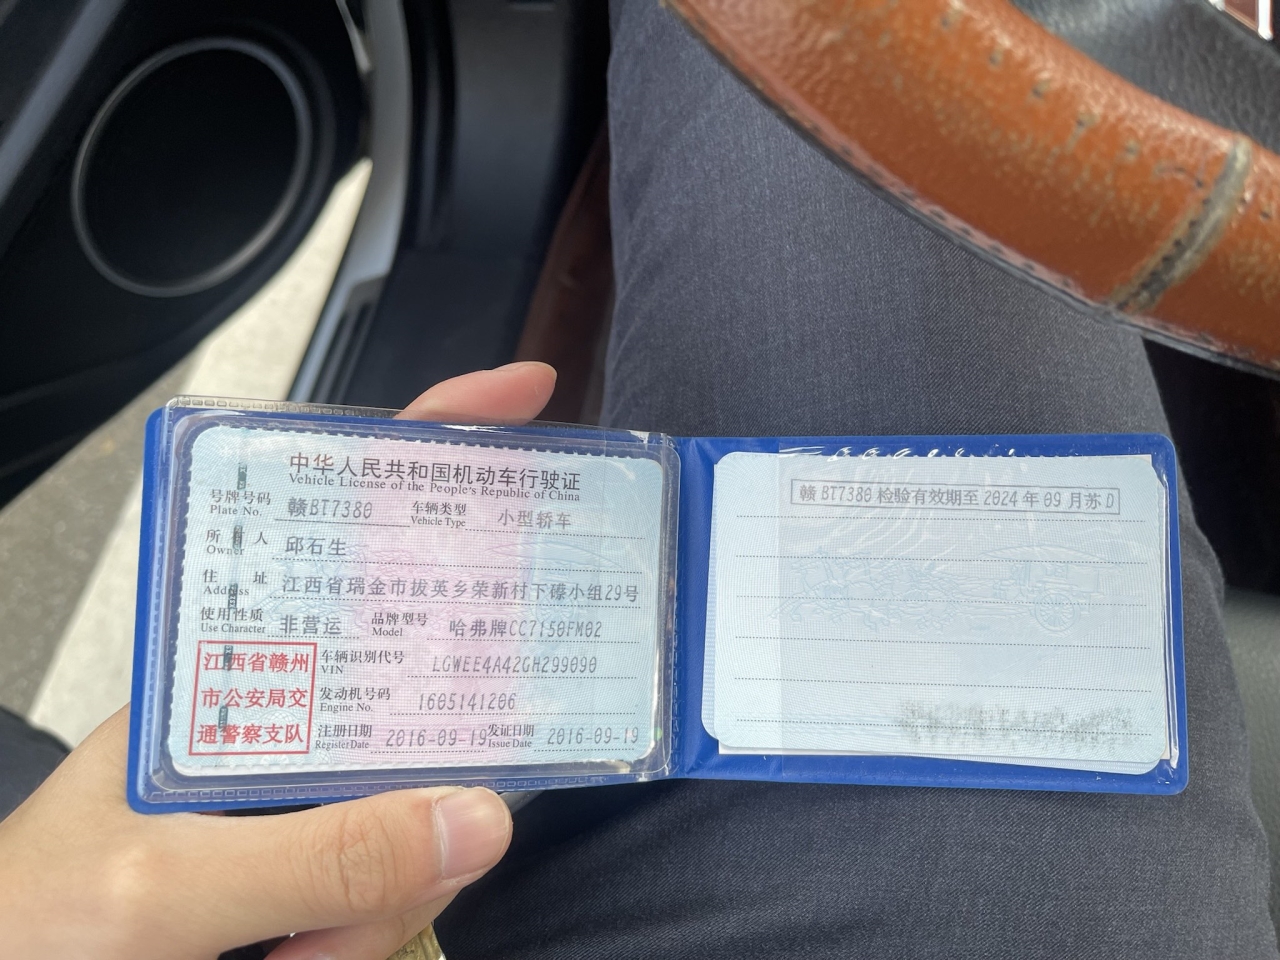 中华人民共和国机动车行驶证
Vehicle License of the People's Republic of China
号牌号码 赣BT7380 车辆类型 小型轿车
Plate No. Vehicle Type
所有人 邱石生
Owner
住址 江西省瑞金市拔英乡荣新村下磜小组29号
Address
使用性质 非营运 品牌型号 哈弗牌CC7150FM02
Use Character Model
江西省赣州
市公安局交
通警察支队
车辆识别代号 LGWEE4A42GH299090
VIN
发动机号码 1605141206
Engine No.
注册日期 2016-09-19 发证日期 2016-09-19
Register Date Issue Date
赣BT7380检验有效期至2024年09月苏D